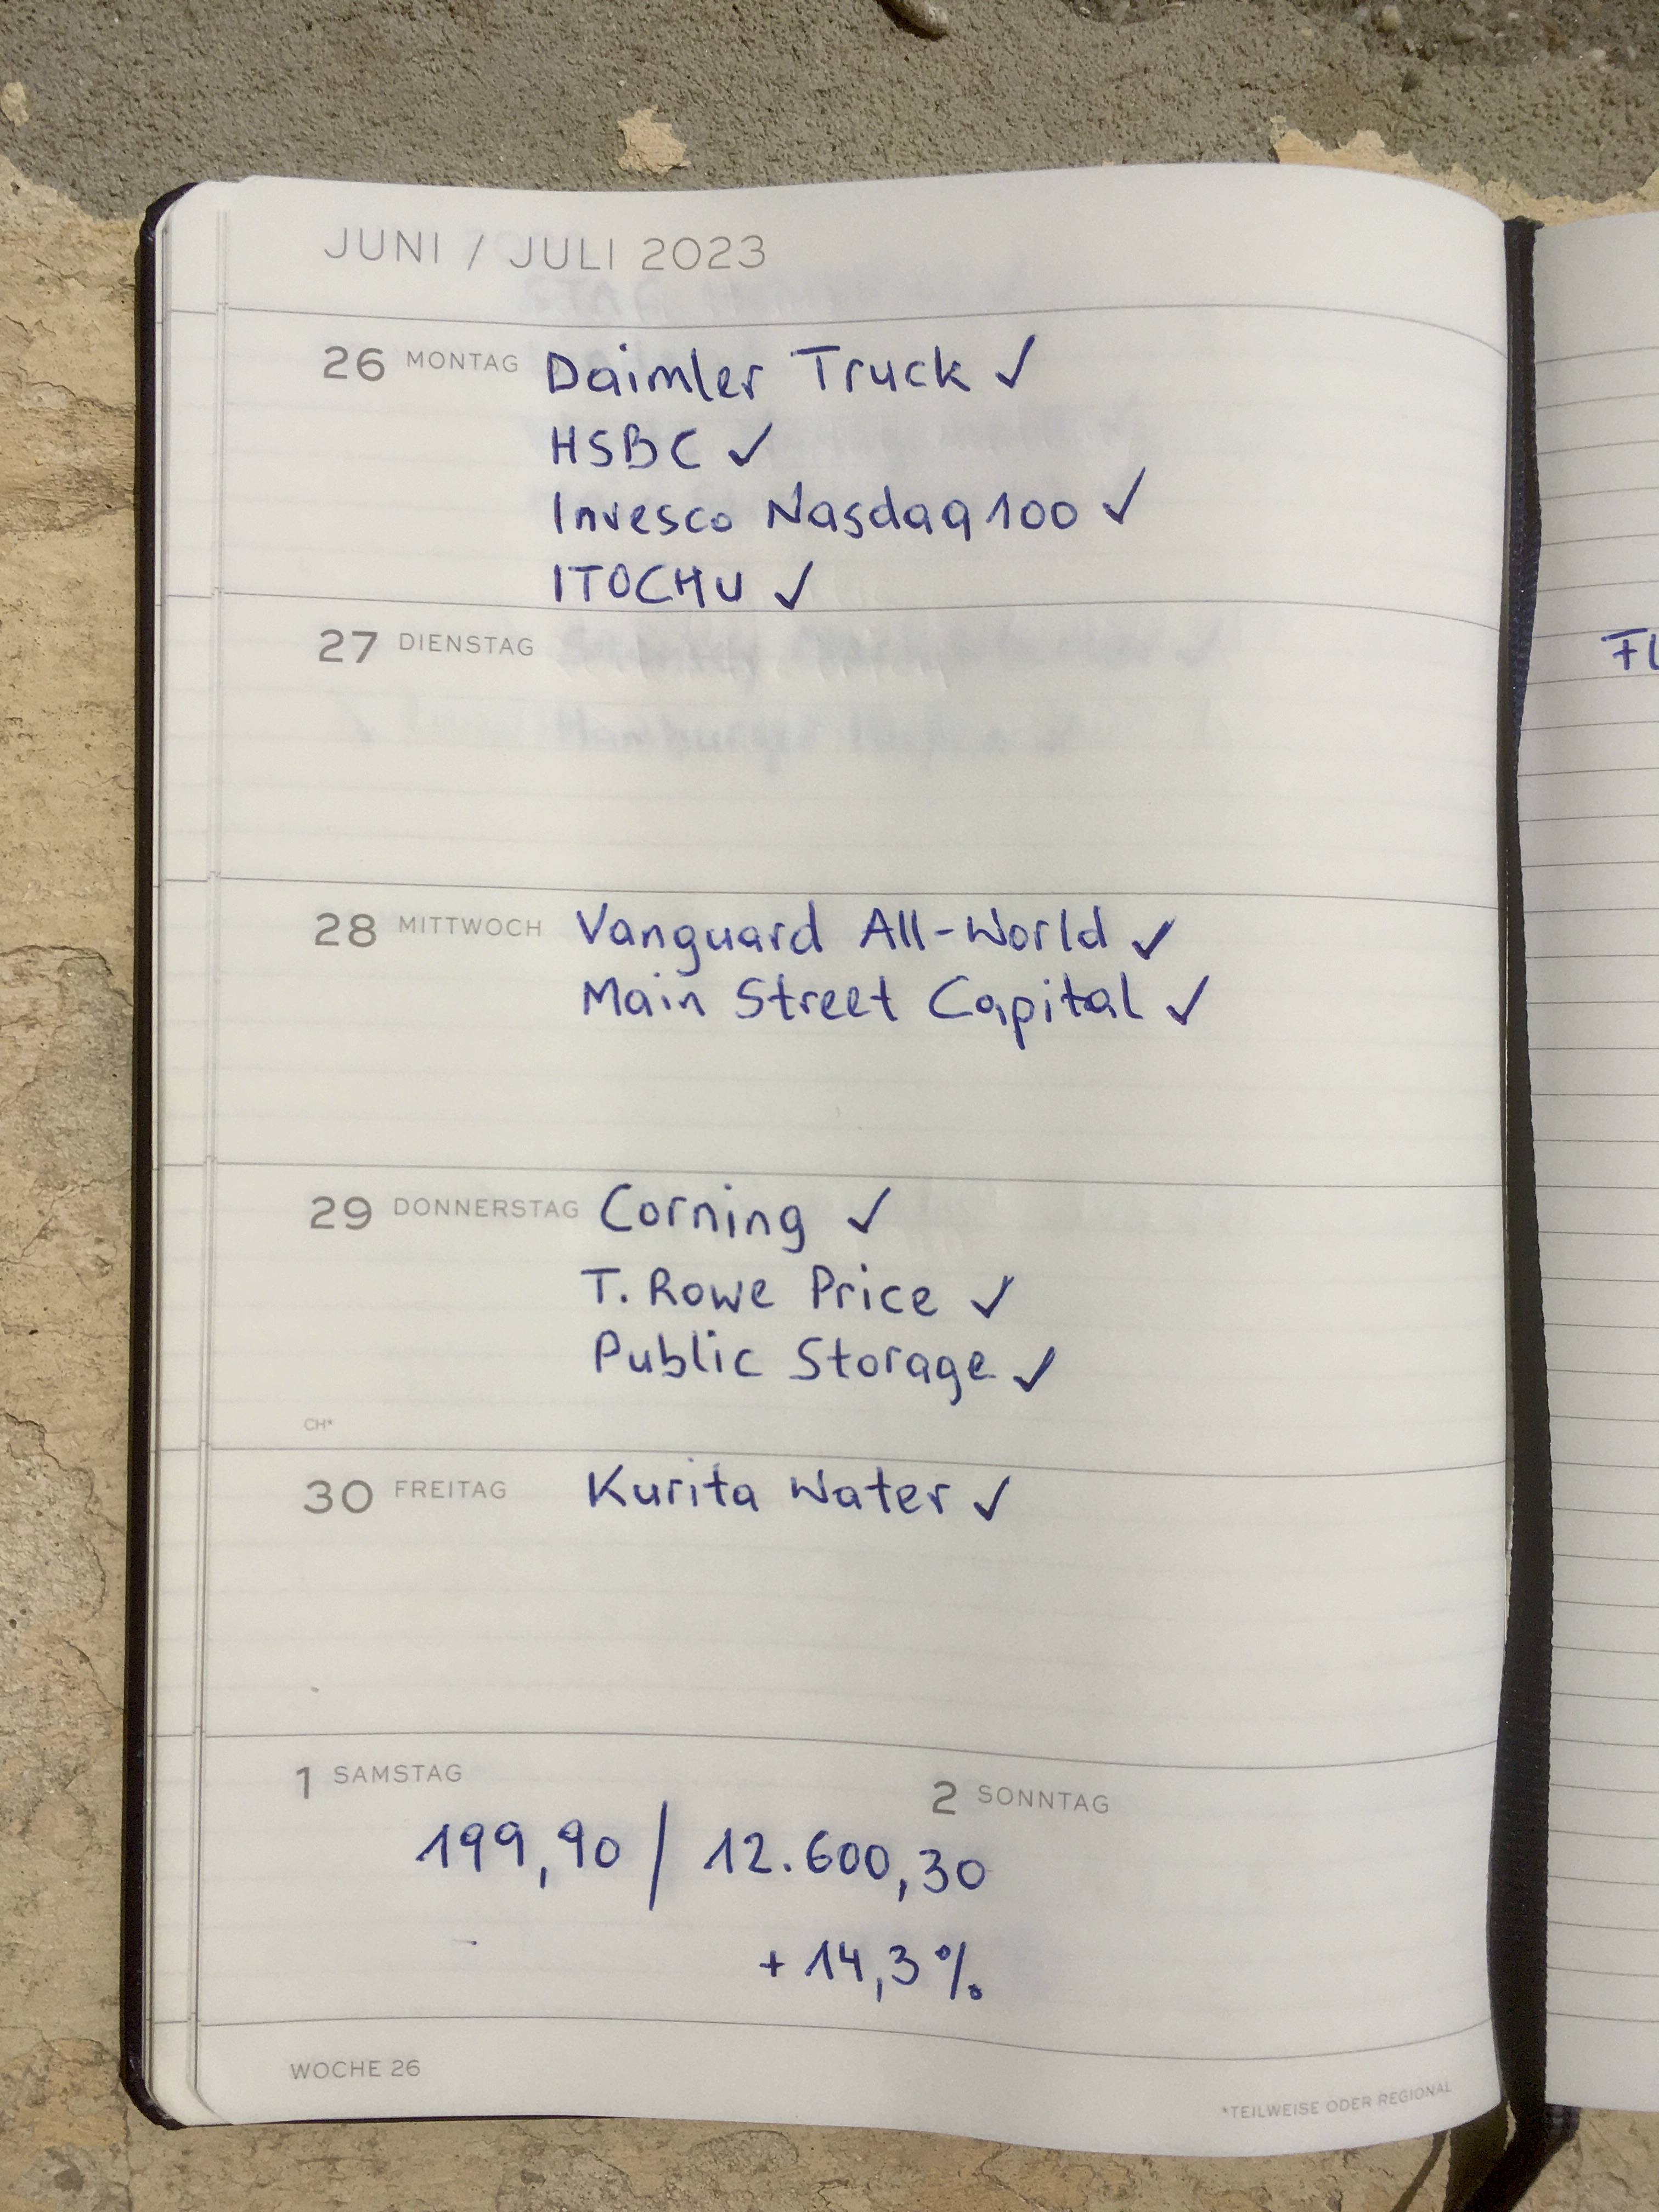 JUNI / JULI 2023
26 MONTAG Daimler Truck ✓
HSBC ✓
Invesco Nasdaq 100 ✓
ITOCHU ✓
27 DIENSTAG
28 MITTWOCH Vanguard All-World ✓
Main Street Capital ✓
29 DONNERSTAG Corning ✓
T. Rowe Price ✓
Public Storage ✓
CH*
30 FREITAG Kurita Water ✓
1 SAMSTAG 2 SONNTAG
199,90 / 12.600,30
+ 14,3 %
WOCHE 26
*TEILWEISE ODER REGIONAL